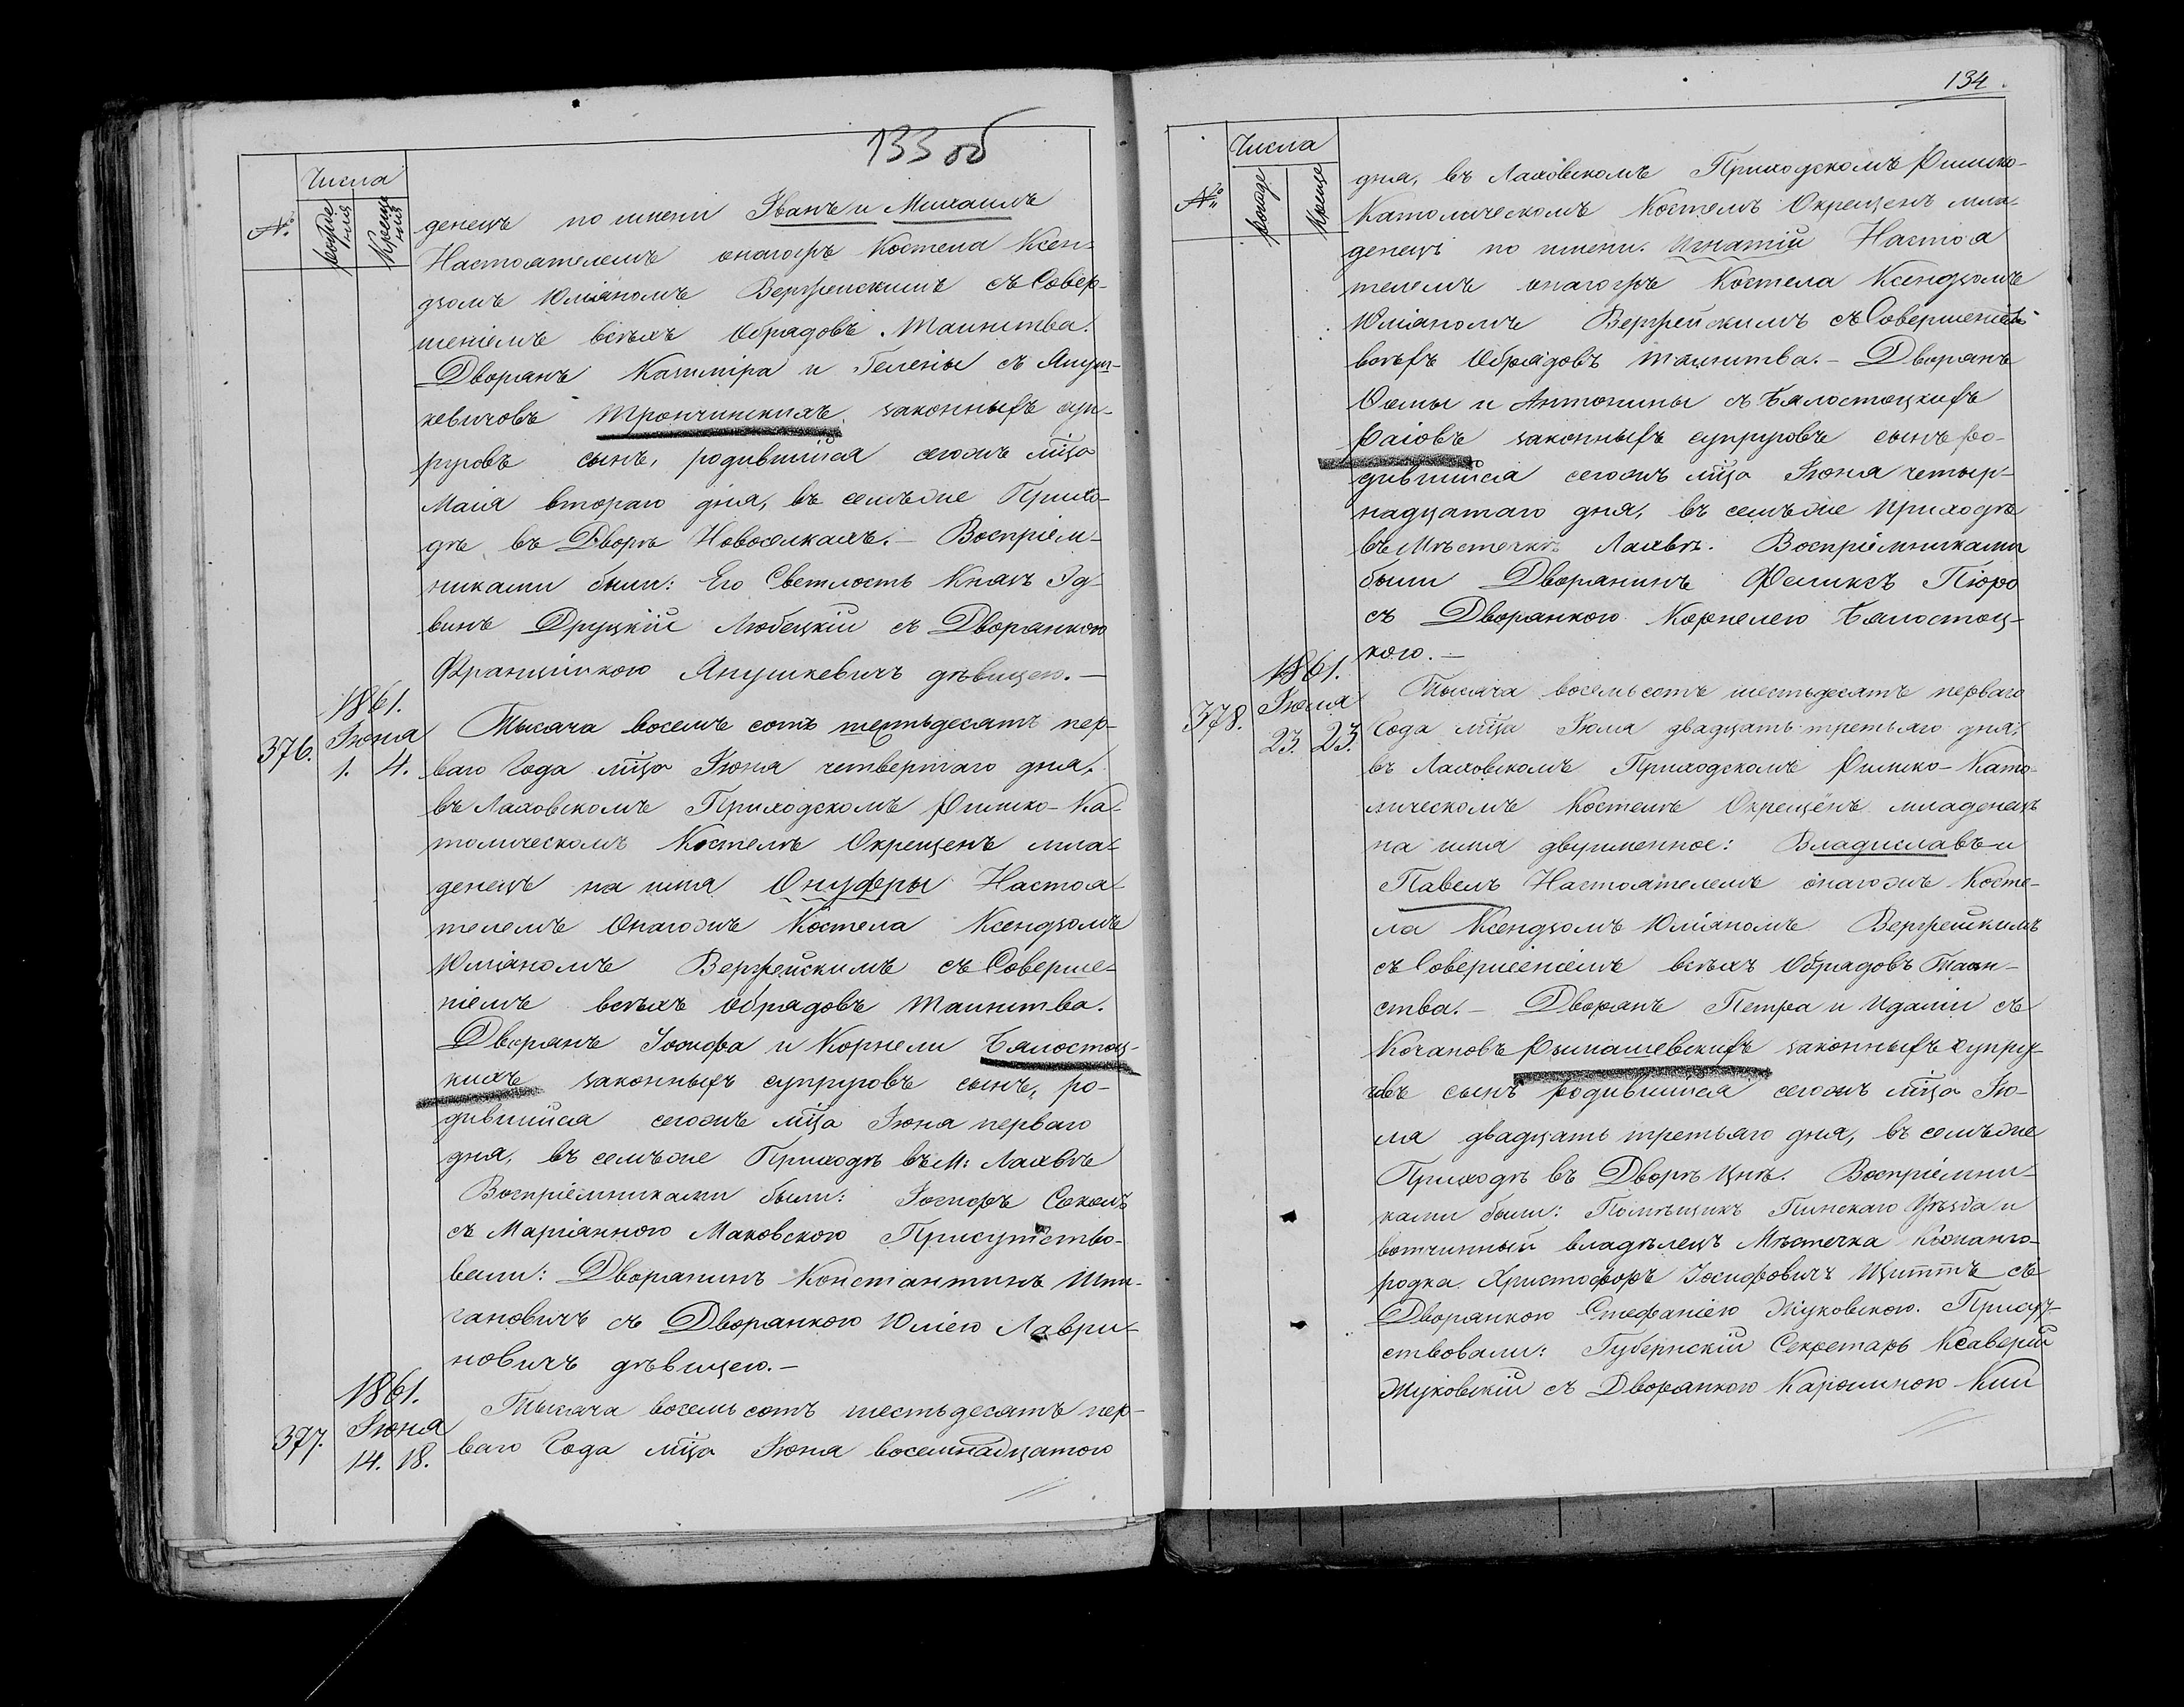 133 об
Числа
№ рожденія Крещенія
денецъ по имени Іванъ и Михаилъ
Настоятелемъ онагожъ Костела Ксен-
дзомъ Юліаномъ Вержейскимъ съ Совер-
шеніемъ всѣхъ Обрядовъ Таинства.
Дворянъ Казиміра и Гелены съ Януш-
кевичовъ Трончинскихъ законныхъ суп-
руговъ сынъ, родившійся сегожъ мѣца
Маія втораго дня, въ семъ же Прихо-
дѣ въ Дворѣ Новоселкахъ. – Воспріем-
никами были: Его Светлость Князь Эд-
винъ Друцкій Любецкій съ Дворянкою
Францишкою Янушкевичъ дѣвицею. –
1861.
376. Іюня
1. 4.
Тысяча восемъ сотъ шестьдесятъ пер-
ваго Года мѣца Іюня четвертаго дня,
въ Лаховскомъ Приходскомъ Римско-Ка-
толическомъ Костелѣ Окрещенъ мла-
денецъ на имя Онуфры Настоя-
телемъ Онагожъ Костела Ксендзомъ
Юліаномъ Вержейскимъ съ Соверше-
ніемъ всѣхъ Обрядовъ Таинства.
Дворянъ Іосифа и Корнели Бялостоц-
кихъ законныхъ супруговъ сынъ, ро-
дившійся сегожъ мѣца Іюня перваго
дня, въ семъ же Приходѣ въ М: Лахвѣ
Воспріемниками были: Іосифъ Соколъ
съ Маріанною Маковскою Присутство-
вали: Дворянинъ Константинъ
гановичъ съ Дворянкою Юліею Лаври-
новичъ дѣвицею. –
1861.
377. Іюня
14. 18.
Тысяча восемь сотъ шестьдесятъ пер-
ваго Года мѣца Іюня восемнадцатого
134.
Числа
№ рожде Креще
дня, въ Лаховскомъ Приходскомъ Римско-
Католическомъ Костелѣ Окрещенъ мла-
денецъ по имени. Игнатій Настоя
телемъ онагожъ Костела Ксендзомъ
Юліаномъ Вержейскимъ съ Совершеніемъ
всѣхъ Обрядовъ таинства. – Дворянъ
Ѳомы и Антонины съ Бялостоцкихъ
Раіовъ законныхъ супруговъ сынъ ро-
дившійся сегожъ мѣца Іюня четыр-
надцатаго дня, въ семъ же Приходѣ
въ Мѣстечкѣ Лахвѣ. Воспріемниками
были Дворянинъ Феликсъ Пюро
съ Дворянкою Корнелею Бялостоц-
кою. –
1861.
378. Іюля
23. 23.
Тысяча восемьсотъ шестьдесятъ перваго
Года мѣца Іюля двадцать третьяго дня,
въ Лаховскомъ Приходскомъ Римско-Като-
лическомъ Костелѣ Окрещёнъ младенецъ
на имя двуименное: Владиславъ и
Павелъ Настоятелемъ онагожъ Косте-
ла Ксендзомъ Юліаномъ Вержейскимъ
съ Совершеніемъ всѣхъ Обрядовъ Таин-
ства. – Дворянъ Петра и Идаліи съ
Кочановъ Рымашевскихъ законныхъ супру-
говъ сынъ родившійся сегожъ мѣца Ію-
ля двадцать третьяго дня, въ семъ же
Приходѣ въ Дворѣ Цнѣ. Воспріемни-
ками были: Помѣщикъ Пинскаго Уѣзда и
вотчинный владѣлецъ Мѣстечка Кожанго-
родка Христофоръ Іосифовичъ Щиттъ съ
Дворянкою Стефаніею Жуковскою. Присут-
ствовали: Губернскій Секретарь Ксаверій
Жуковскій съ Дворянкою Каролиною Кии